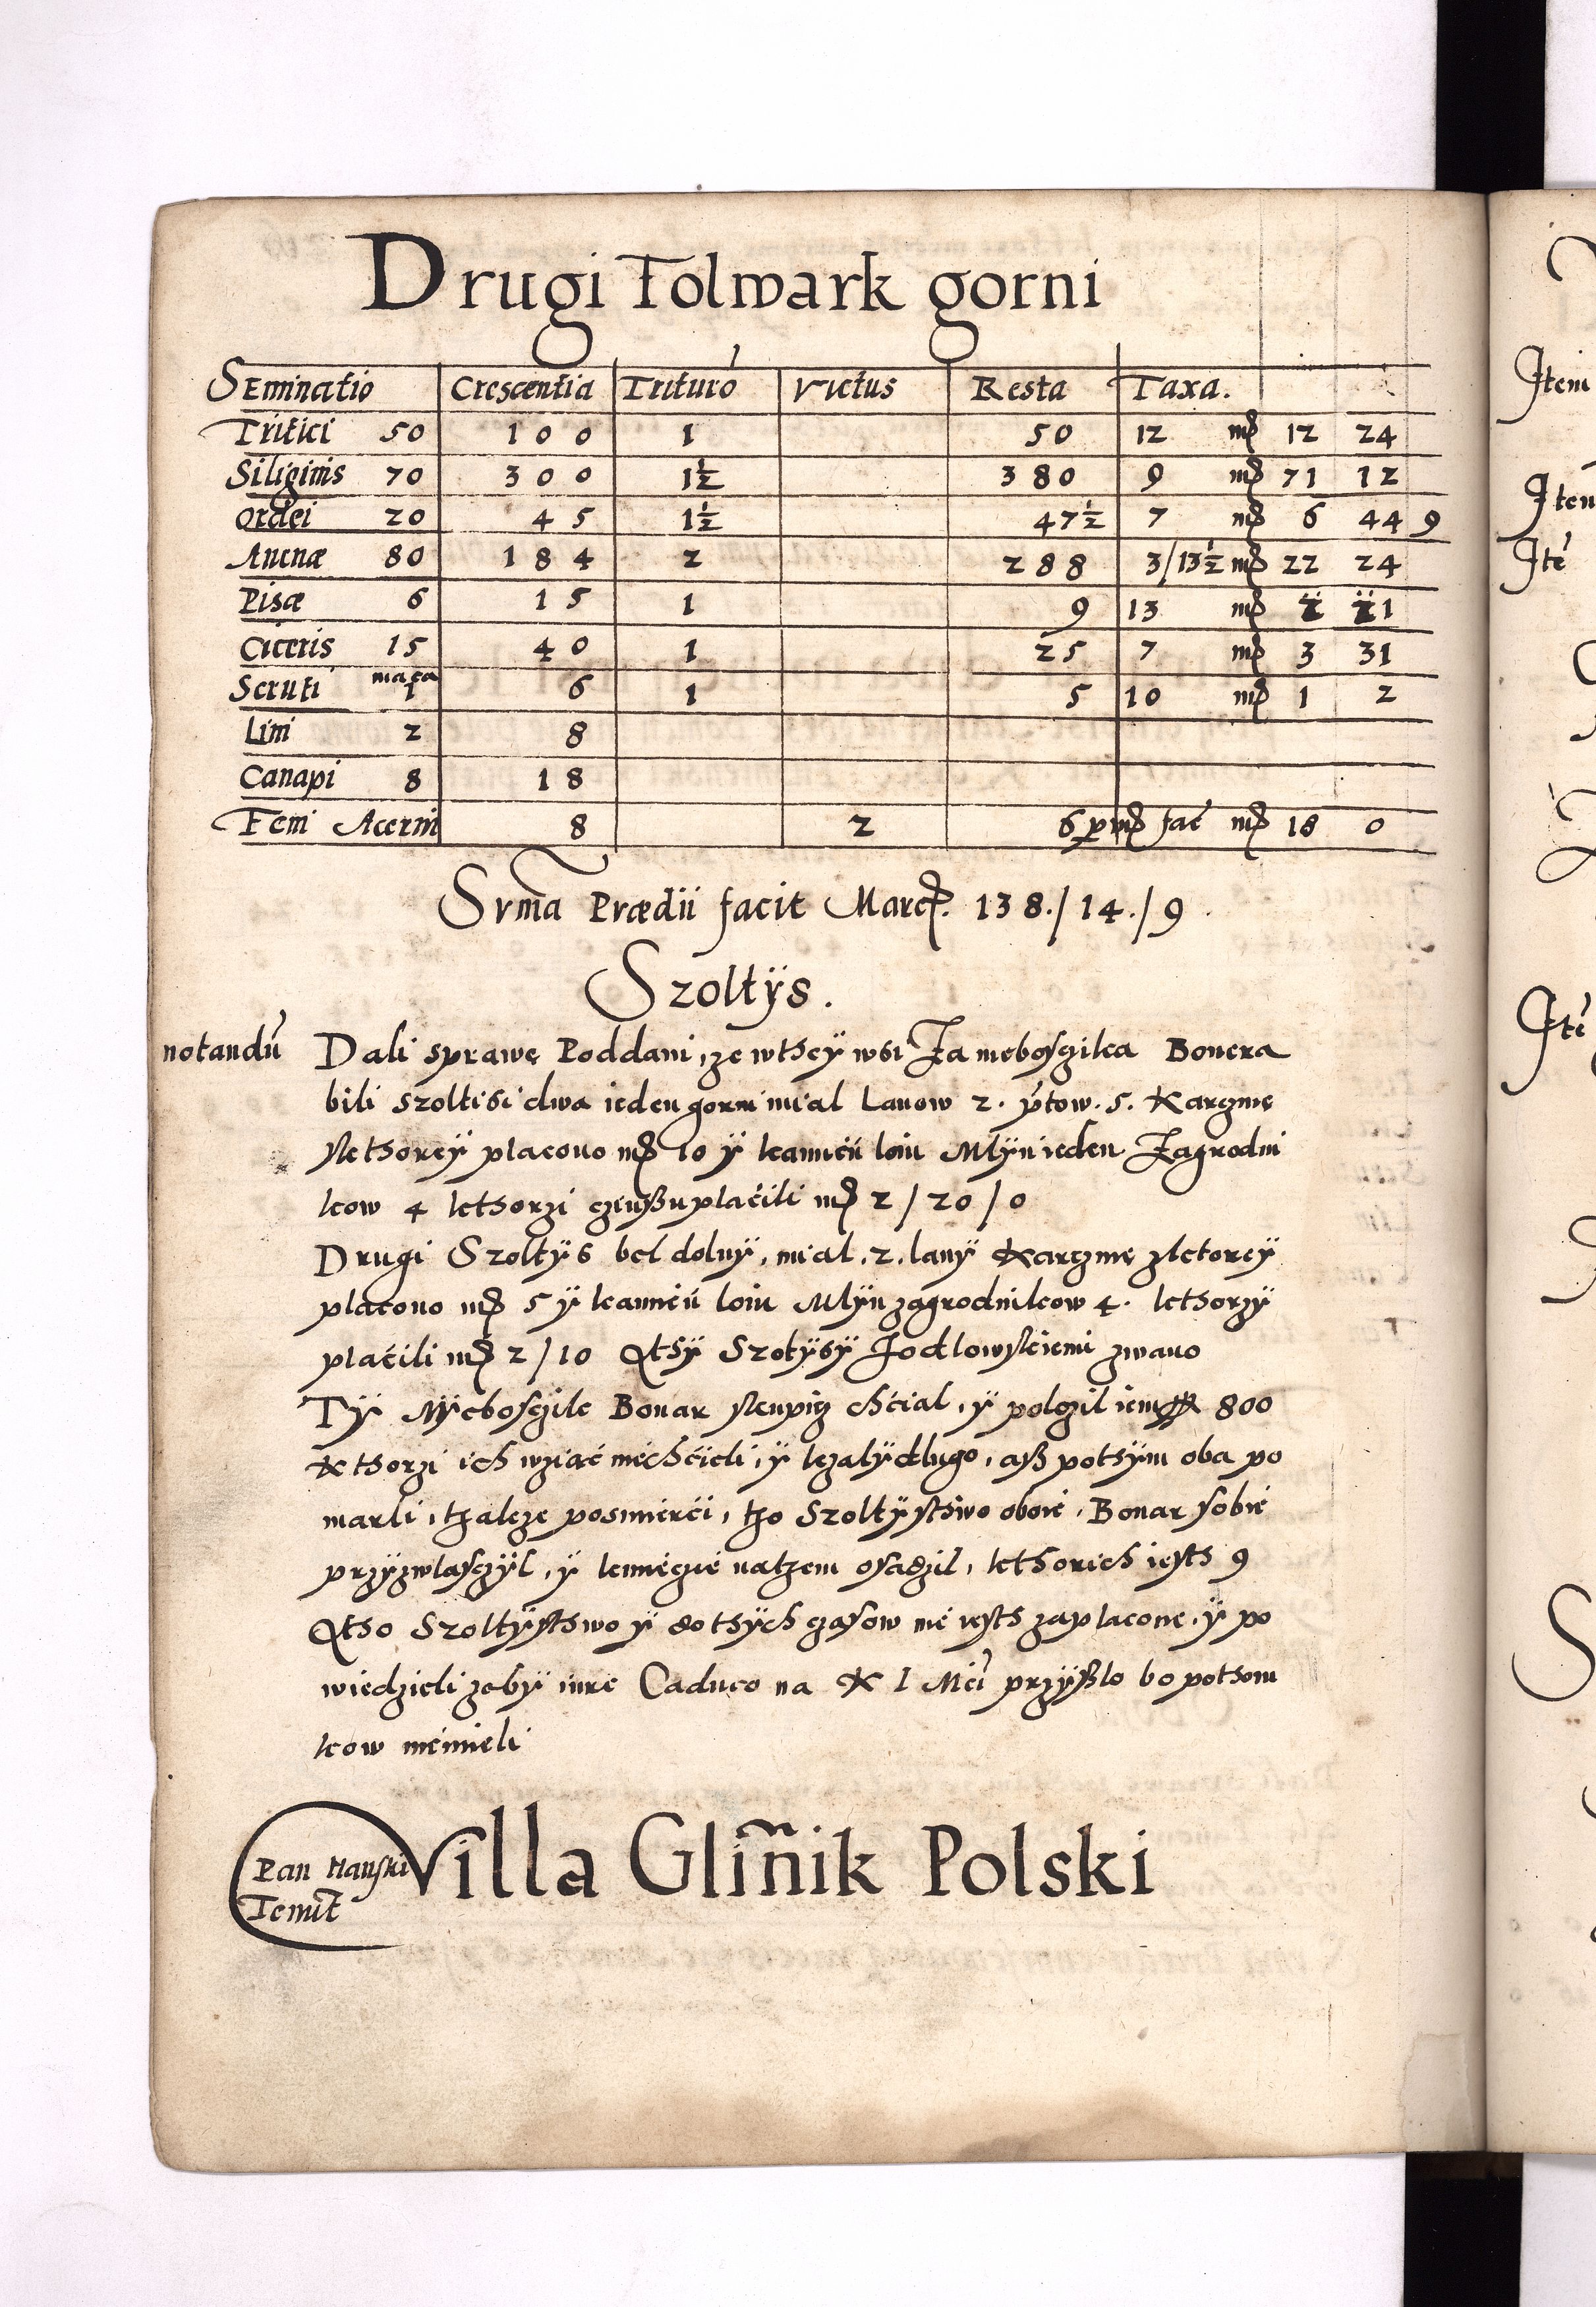 Drugi Folwark gorni
Seminatio Crescentia Trituro Victus Resta Taxa.
Tritici 50 100 1 50 12 mẜ 12 24
Siliginis 70 300 1½ 380 9 mẜ 71 12
Ordei 20 45 1½ 47½ 7 mẜ 6 44 9
Auenæ 80 184 2 288 3/13½ mẜ 22 24
Pisæ 6 15 1 9 13 mẜ 2 21
Ciceris 15 40 1 25 7 mẜ 3 31
maca
Scruti 1 6 1 5 10 mẜ 1 2
Lini 2 8
Canapi 8 18
Feni Acerui 8 2 6 per mẜ fac mẜ 18 0
Sum̃a Prædii facit Marc. 138./14./9.
Szoltÿs.
notandū Dali sprawę Poddani, ze wthey wsi Za niebosczika Bonera
bili szoltisi dwa ieden gorni mial Lanow 2. p̓tow. 5. Karczmę
skthorey placono mẜ 10 ÿ kamiēn loiu Młyn ieden Zagrodni
kow 4 kthorzi czinßu placili mẜ 2/20/0
Drugi Szoltÿs bel dolnÿ, mial. 2. lanÿ Karczmę zktoreÿ
placono mẜ 5 ÿ kamień loiu Mlÿn zagrodnikow 4. kthorzÿ
placili mẜ 2/10 Cthÿ Szotÿsÿ Jodlowskiemi zwano
Tÿ Niebosczik Bonar skupicz chcial, ÿ polozil iem 800
Kthorzi ich wziąc niechcieli, ÿ lezalÿ dlugo, aß pothÿm oba po
marli, tzakze posmierci, tzo Szoltÿsthwo oboie, Bonar sobie
przÿzwlasczÿl, ÿ kmiecie natzem osadzil, kthorich iesth 9
Ctho Szoltÿsthwo ÿ dothÿch czasow nie iesth zaplacone, ÿ po
wiedzieli zebÿ iure Caduco na K I Mci przÿßlo bo pothom
kow niemieli
Pan
Tenut
Villa Glinñik Polski
Item
Item
Ite
Ite